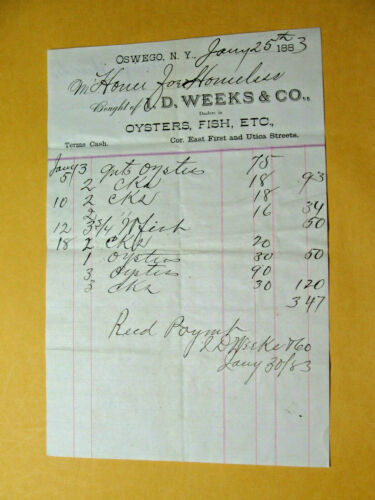 OSWEGO, N. Y., Jany 25th 1883
M Home for Homeless
Bought of I. D. WEEKS & CO.,
Dealers in
OYSTERS, FISH, ETC.,
Terms Cash. Cor. East First and Utica Streets.
Jany 3 qts Oysters 75
5 2 cks 18 93
10 2 cks 18
2 " 16 34
12 3 3/4 W fish 50
18 2 cks 20
1 Oysters 30 50
3 Oysters 90
3 cks 30 120
3 47
Recd Paymt
I D Weeks & Co
Jany 30/83